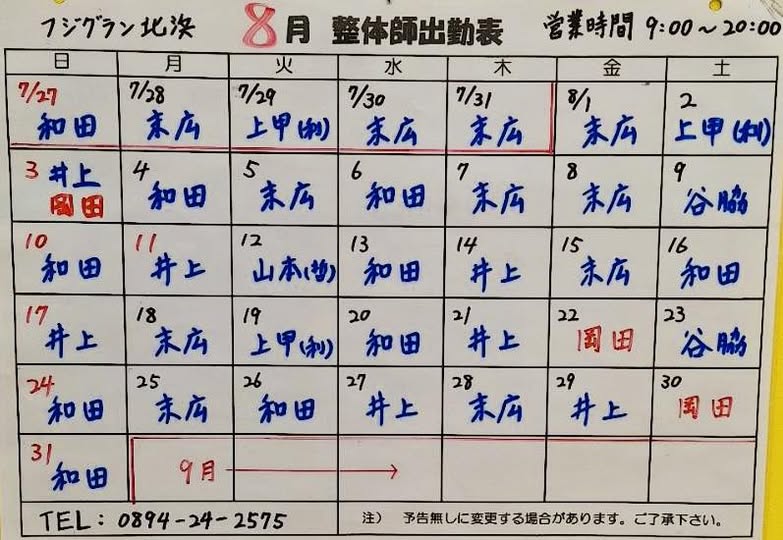 フジグラン北浜 8月 整体師出勤表 営業時間 9:00～20:00
日 月 火 水 木 金 土
7/27 7/28 7/29 7/30 7/31 8/1 2
和田 末広 上甲(利) 末広 末広 末広 上甲(利)
3 井上 4 5 6 7 8 9
岡田 和田 末広 和田 末広 末広 谷脇
10 11 12 13 14 15 16
和田 井上 山本(哲) 和田 井上 末広 和田
17 18 19 20 21 22 23
井上 末広 上甲(利) 和田 井上 岡田 谷脇
24 25 26 27 28 29 30
和田 末広 和田 井上 末広 井上 岡田
31
和田 9月 →
TEL: 0894-24-2575 注） 予告無しに変更する場合があります。ご了承下さい。